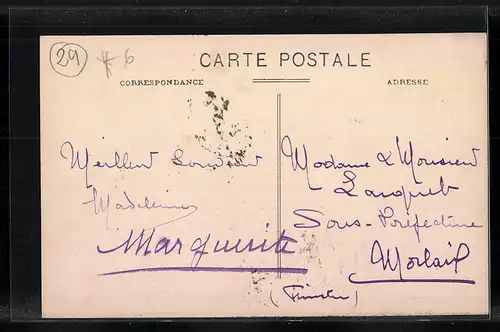 29 * 6
CARTE POSTALE
CORRESPONDANCE
ADRESSE
Meilleur Souvenir
Madeleine
Marguerite
Madame & Monsieur
Sous-Préfecture
Morlaix
(Finistère)